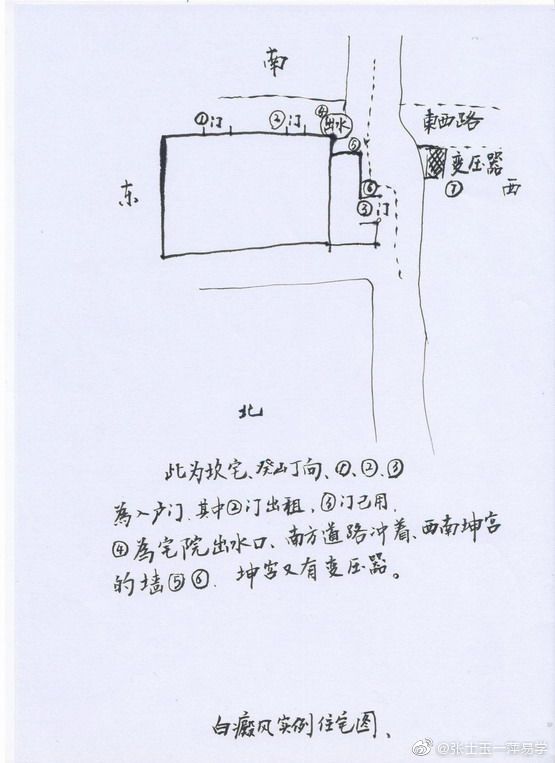 南
①门 ②门 ④出水
⑤
東西路
变压器
⑦ 西
东
⑥
③门
北
此为坎宅、癸山丁向、①、②、③
為入户门.其中②门出租,③门己用.
④為宅院出水口、南方道路冲着、西南坤宫
的墙⑤⑥.坤宫又有变压器。
白癜风实例住宅图、
@张士玉一萍易学